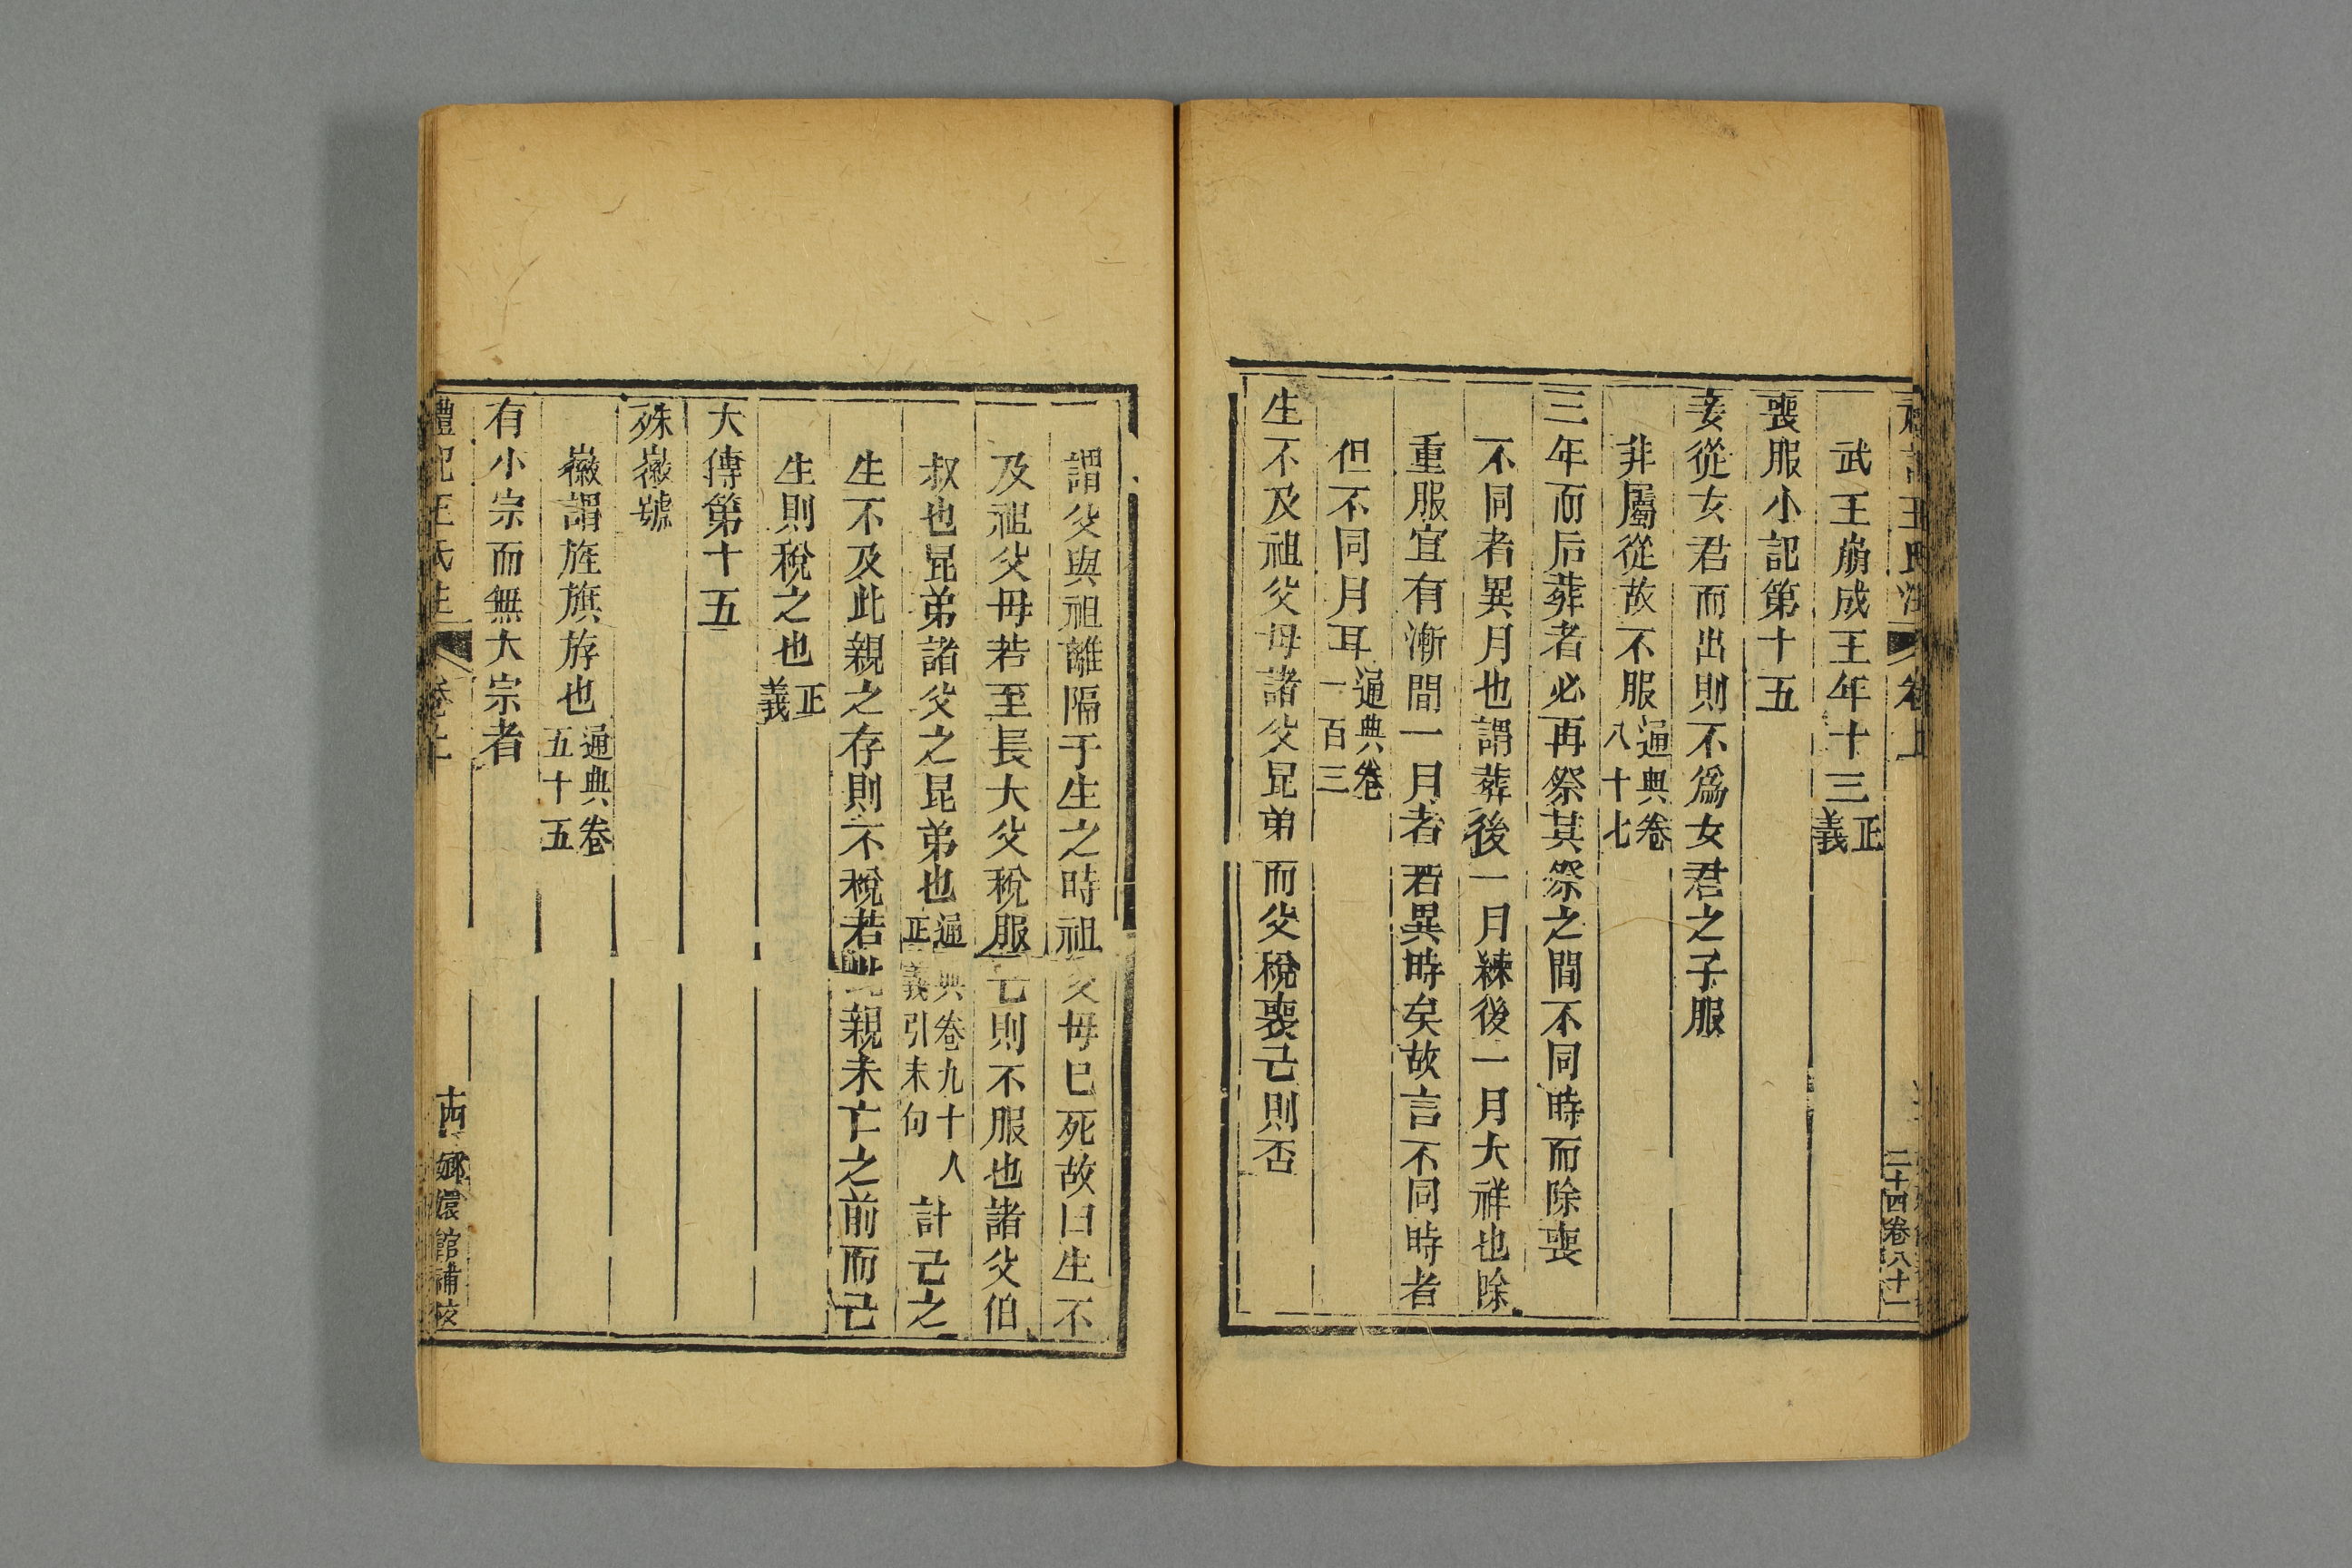 武王崩成王年十三正義
喪服小記第十五
妾從女君而出則不為女君之子服
非屬從故不服通典卷八十七
三年而后葬者必再祭其祭之間不同時而除喪
不同者異月也謂葬後一月練後一月大祥也除
重服宜有漸間一月者若異時矣故言不同時者
但不同月耳通典卷一百三
生不及祖父母諸父昆弟而父稅喪己則否
二十四卷八十一
謂父與祖離隔子生之時祖父母已死故曰生不
及祖父母若至長大父稅服己則不服也諸父伯
叔也昆弟諸父之昆弟也通典卷九十八正義引末句計己之
生不及此親之存則不稅若此親未亡之前而己
生則稅之也正義
大傳第十五
殊徽號
徽謂旌旗斿也通典卷五十五
有小宗而無大宗者
禮記王氏注 卷上 嫏嬛館補校